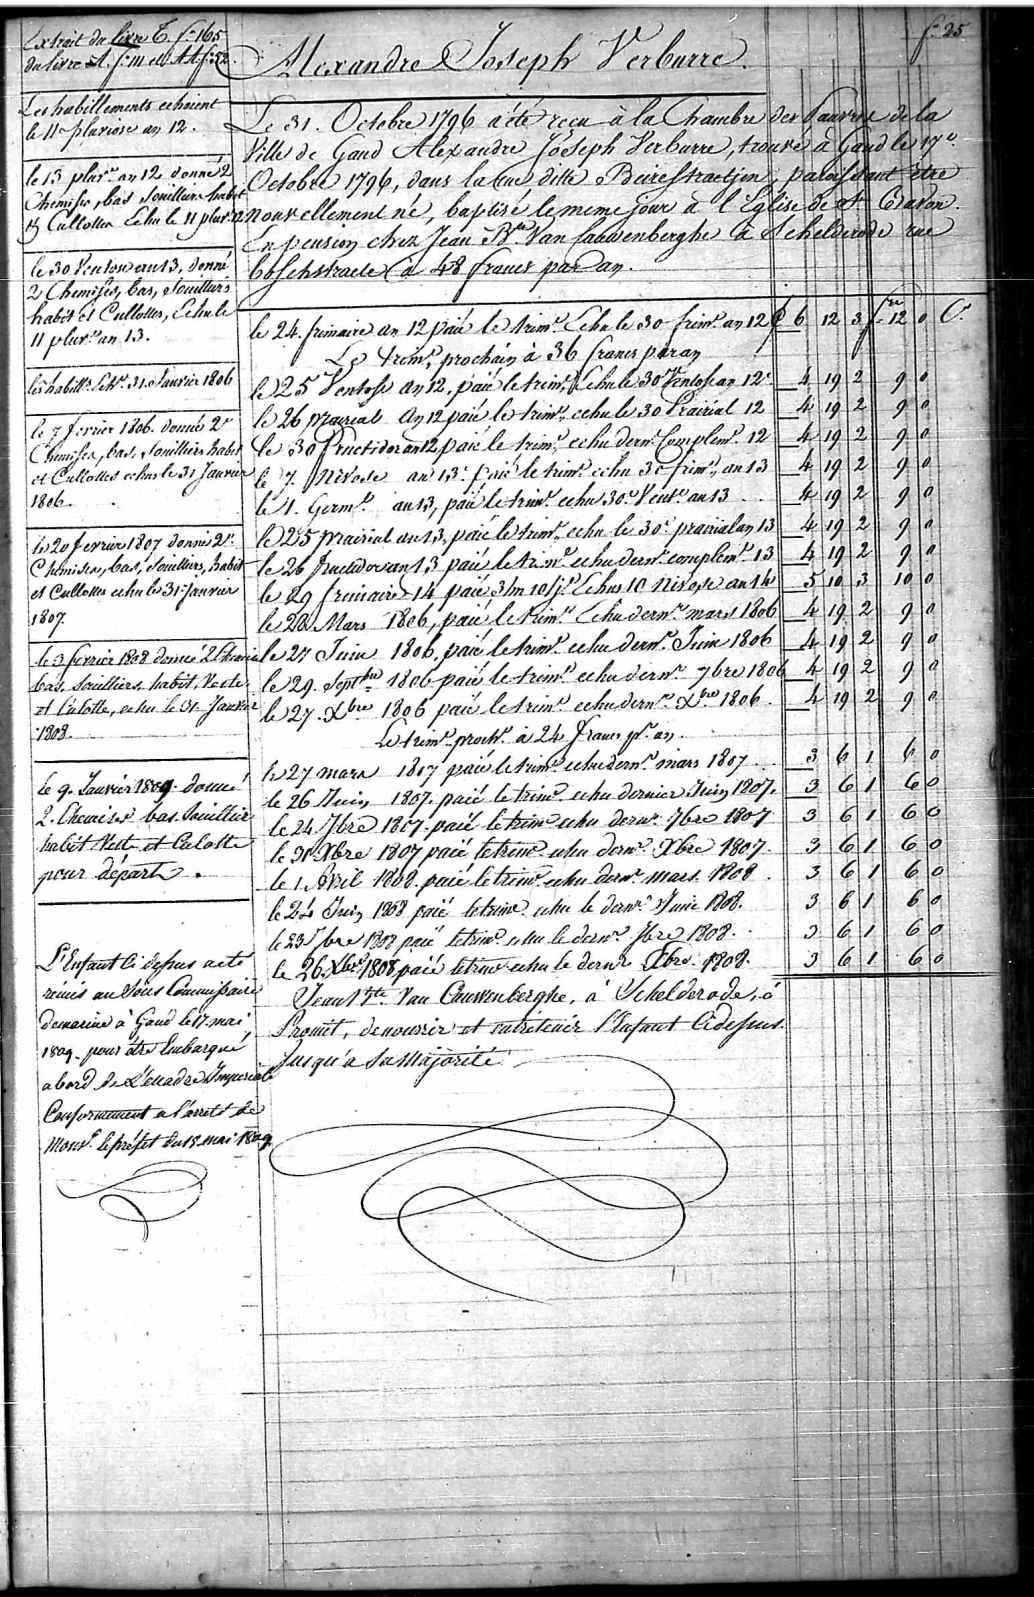 f.º 25
Alexandre Joseph Verburre.
Extrait du livre T. f.º 165
du livre A. f. 111 et AA f. 52
Les habillements echoient
le 11 pluviose an 12.
le 13 pluv.se an 12 donné 2
Chemises, bas, souilliers habit
et Cullottes Echu le 11 pluv. 12
le 30 Ventose an 13, donné
2 Chemises, bas, Souilliers
habit et Cullottes, Echu le
11 pluv.se an 13.
les habill.ts Ech.t 31 Janvier 1806
le 7 fevrier 1806 donné 2
Chemises, bas, Souilliers habit
et Cullottes echu le 31 Janvier
1806.
le 20 fevrier 1807 donné 2
Chemises, bas, Souilliers, habit
et Cullottes echu le 31 Janvier
1807.
le 3 fevrier 1808 donné 2 Chemis
bas, souilliers, habit, Veste
et Culotte, echu le 31 Janvier
1808.
le 9 Janvier 1809 donné
2 Chemises bas Souillier
habit Veste et Culotte
pour départ.
L'Enfant ci dessus a eté
remis au Sous Commissaire
de marine à Gand le 17 mai
1809 pour être Embarqué
a bord de l'escadre Imperiale
Conformement a l'arreté de
Mons.r le préfet du 15 mai 1809
Le 31. Octobre 1796 a été reçu à la Chambre des Pauvres de la
Ville de Gand Alexandre Joseph Verburre, trouvé à Gand le 17.e
Octobre 1796, dans la rue ditte Beirestraetjen, paroissant être
nouvellement né, baptisé le meme jour à l'Eglise de St. Bavon.
En pension chez Jean B.te Van Cauwenberghe à Schelderode rue
Bosschstraete à 48 francs par an.
le 24 frimaire an 12 paié le trim.e Echu le 30 frim.e an 12 £ 6 12 3 f. 12 0 C.s
Le trim.e prochain à 36 francs par an
le 25 Ventose an 12, paié le trim.e Echu le 30 Ventose an 12 4 19 2 9 0
le 26 prairial an 12 paié le trim.e echu le 30 Prairial 12 4 19 2 9 0
le 30 fructidor an 12 paié le trim.e echu dern. Complem.e 12 4 19 2 9 0
le 7. Nivose an 13. paié le trim.e echu 30 frim.e an 13 4 19 2 9 0
le 1. Germ.l an 13, paié le trim.e echu 30. Vent.e an 13 4 19 2 9 0
le 25 prairial an 13, paié le trim.e echu le 30. prairial an 13 4 19 2 9 0
le 26 fructidor an 13 paié le trim.e echu dern.r complem.e 13 4 19 2 9 0
le 29 frimaire 14 paié 3/m 10/j.s Echus 10 Nivose an 14 5 10 3 10 0
le 28 Mars 1806, paié le trim.e Echu dern.r mars 1806 4 19 2 9 0
le 27 Juin 1806 paié le trim.e echu dern.r Juin 1806 4 19 2 9 0
le 29. Septbre 1806 paié le trim.e echu dern.r 7bre 1806 4 19 2 9 0
le 27. Xbre 1806 paié le trim.e echu dern.r Xbre 1806 4 19 2 9 0
Le trim.e proch.n à 24 francs p.r an.
le 27 mars 1807 paié le trim.e echu dern.r mars 1807 3 6 1 6 0
le 26 Juin 1807. paié le trim.e echu dernier Juin 1807. 3 6 1 6 0
le 24 7bre 1807. paié le trim.e echu dern.r 7bre 1807 3 6 1 6 0
le 31 Xbre 1807 paié le trim.e echu dern.r Xbre 1807. 3 6 1 6 0
le 1. Avril 1808. paié le trim.e echu dern.r mars. 1808. 3 6 1 6 0
le 24 Juin 1808 paié le trim.e echu le dern.r Juin 1808. 3 6 1 6 0
le 23 7bre 1808 paié le trim.e echu le dern.r 7bre 1808. 3 6 1 6 0
le 26 Xbre 1808 paié le trim.e echu le dern.r Xbre 1808. 3 6 1 6 0
Jean B.te Van Cauwenberghe, à Schelderode, a
Promit, de nourrir et entretenir l'Enfant Cidessus
Jusqu'a sa Majorité